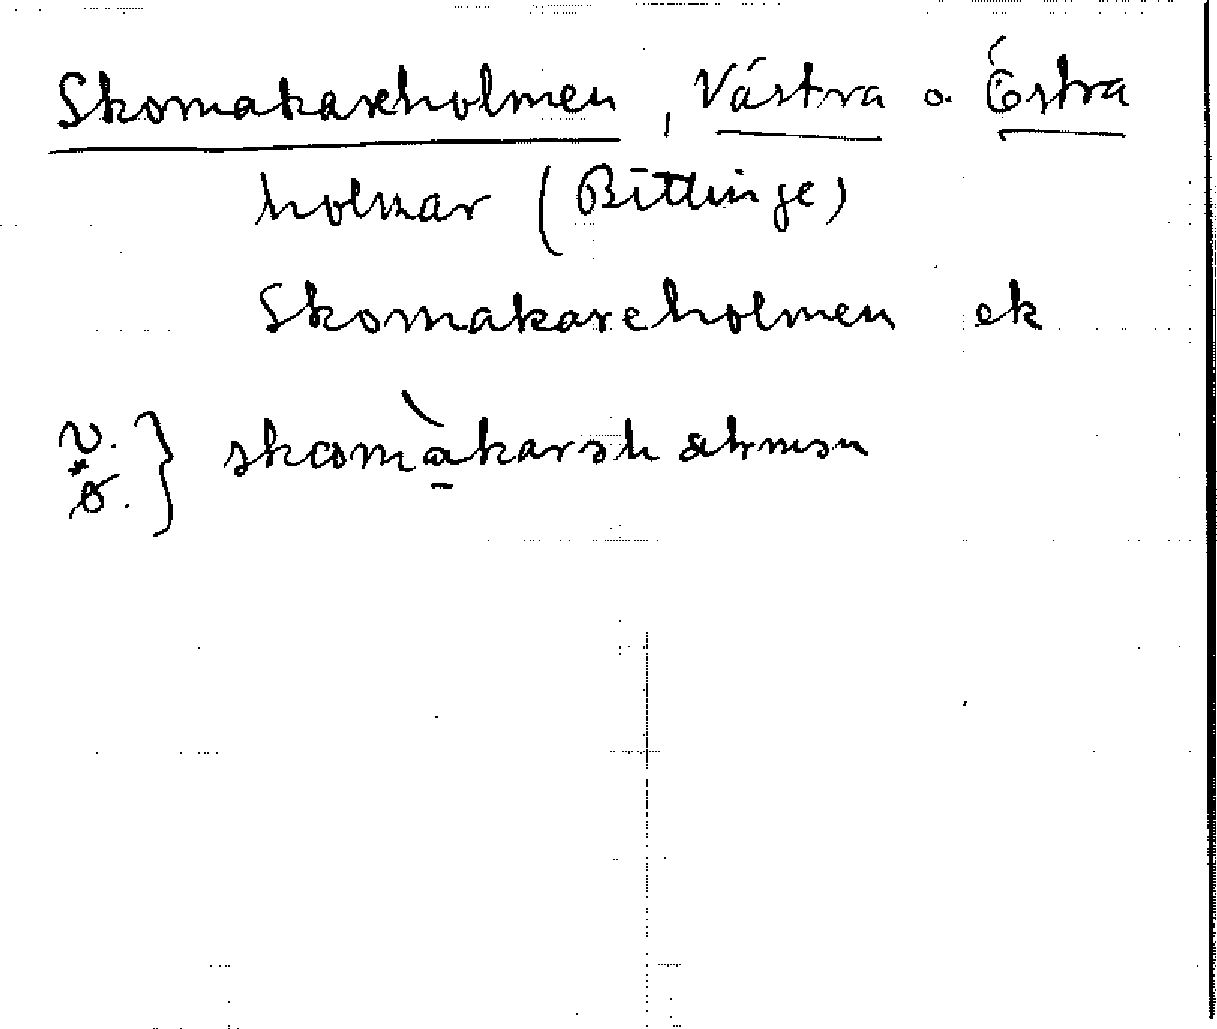 Skomakareholmen, Västra o. Östra
holmar (Bittinge)
Skomakareholmen ek
v.
ö. } skomàkarəhålmən